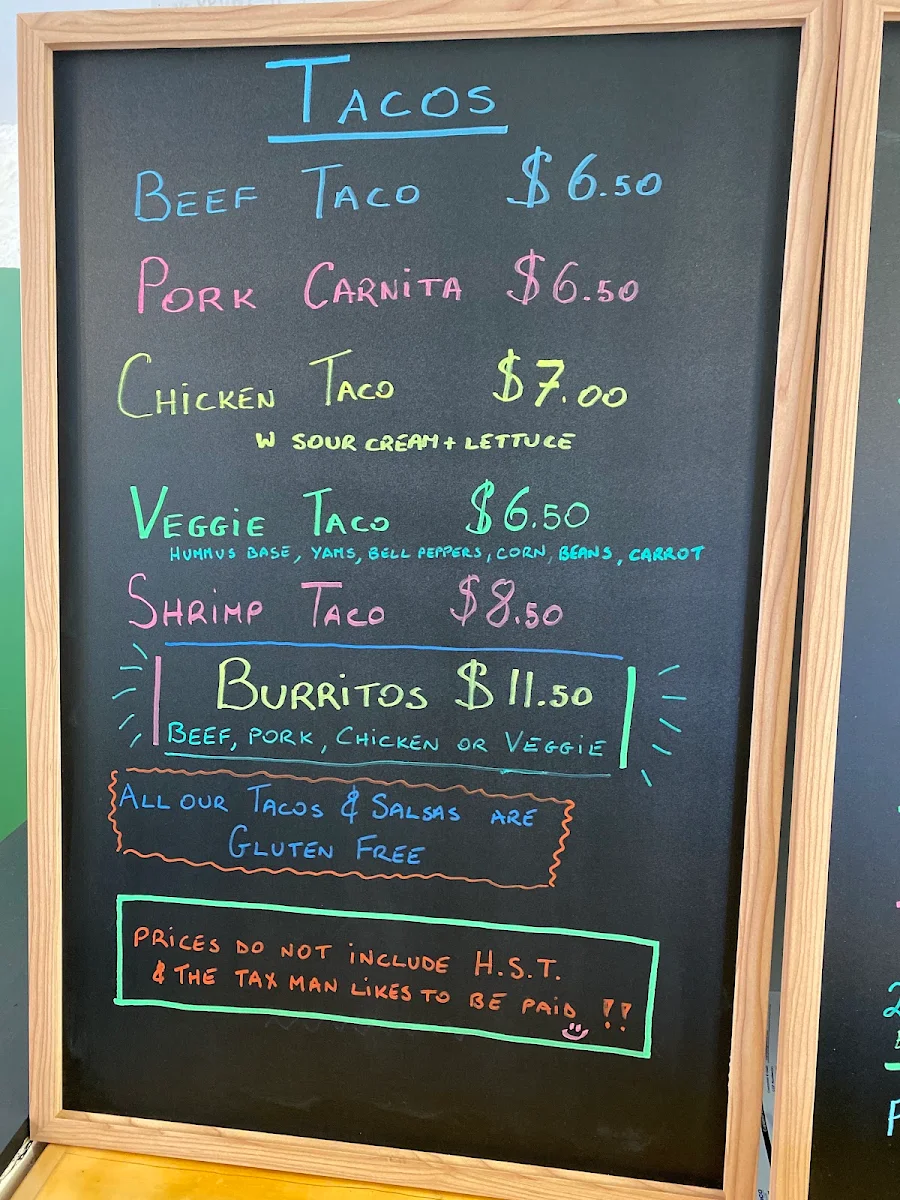 TACOS
BEEF TACO $6.50
PORK CARNITA $6.50
CHICKEN TACO $7.00
W SOUR CREAM + LETTUCE
VEGGIE TACO $6.50
HUMMUS BASE, YAMS, BELL PEPPERS, CORN, BEANS, CARROT
SHRIMP TACO $8.50
BURRITOS $11.50
BEEF, PORK, CHICKEN OR VEGGIE
ALL OUR TACOS & SALSAS ARE
GLUTEN FREE
PRICES DO NOT INCLUDE H.S.T.
& THE TAX MAN LIKES TO BE PAID !!